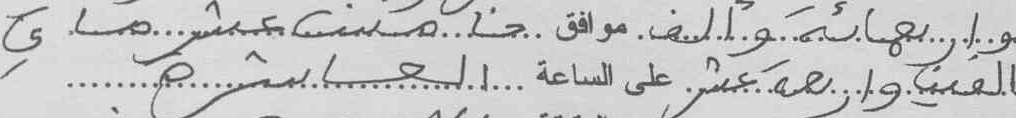 وأربعمائة وألف موافق خامس عشر ماي
ألفين وأربعة عشر على الساعة العاشرة